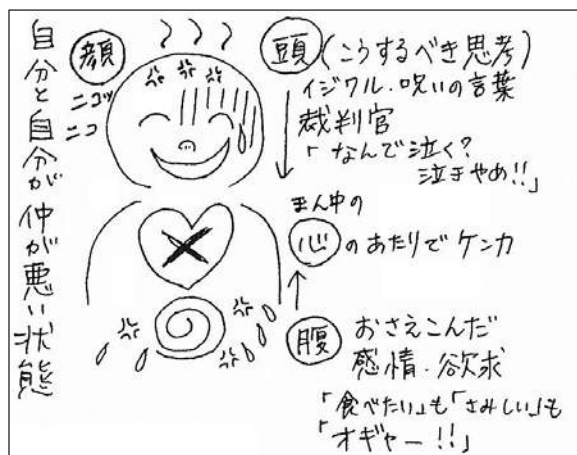 自分と自分が仲が悪い状態
顔
ニコッ
ニコ
頭(こうするべき思考)
イジワル・呪いの言葉
裁判官
「なんで泣く?
泣きやめ!!」
まん中の
心のあたりでケンカ
腹 おさえこんだ
感情・欲求
「食べたい」も「さみしい」も
「オギャー!!」